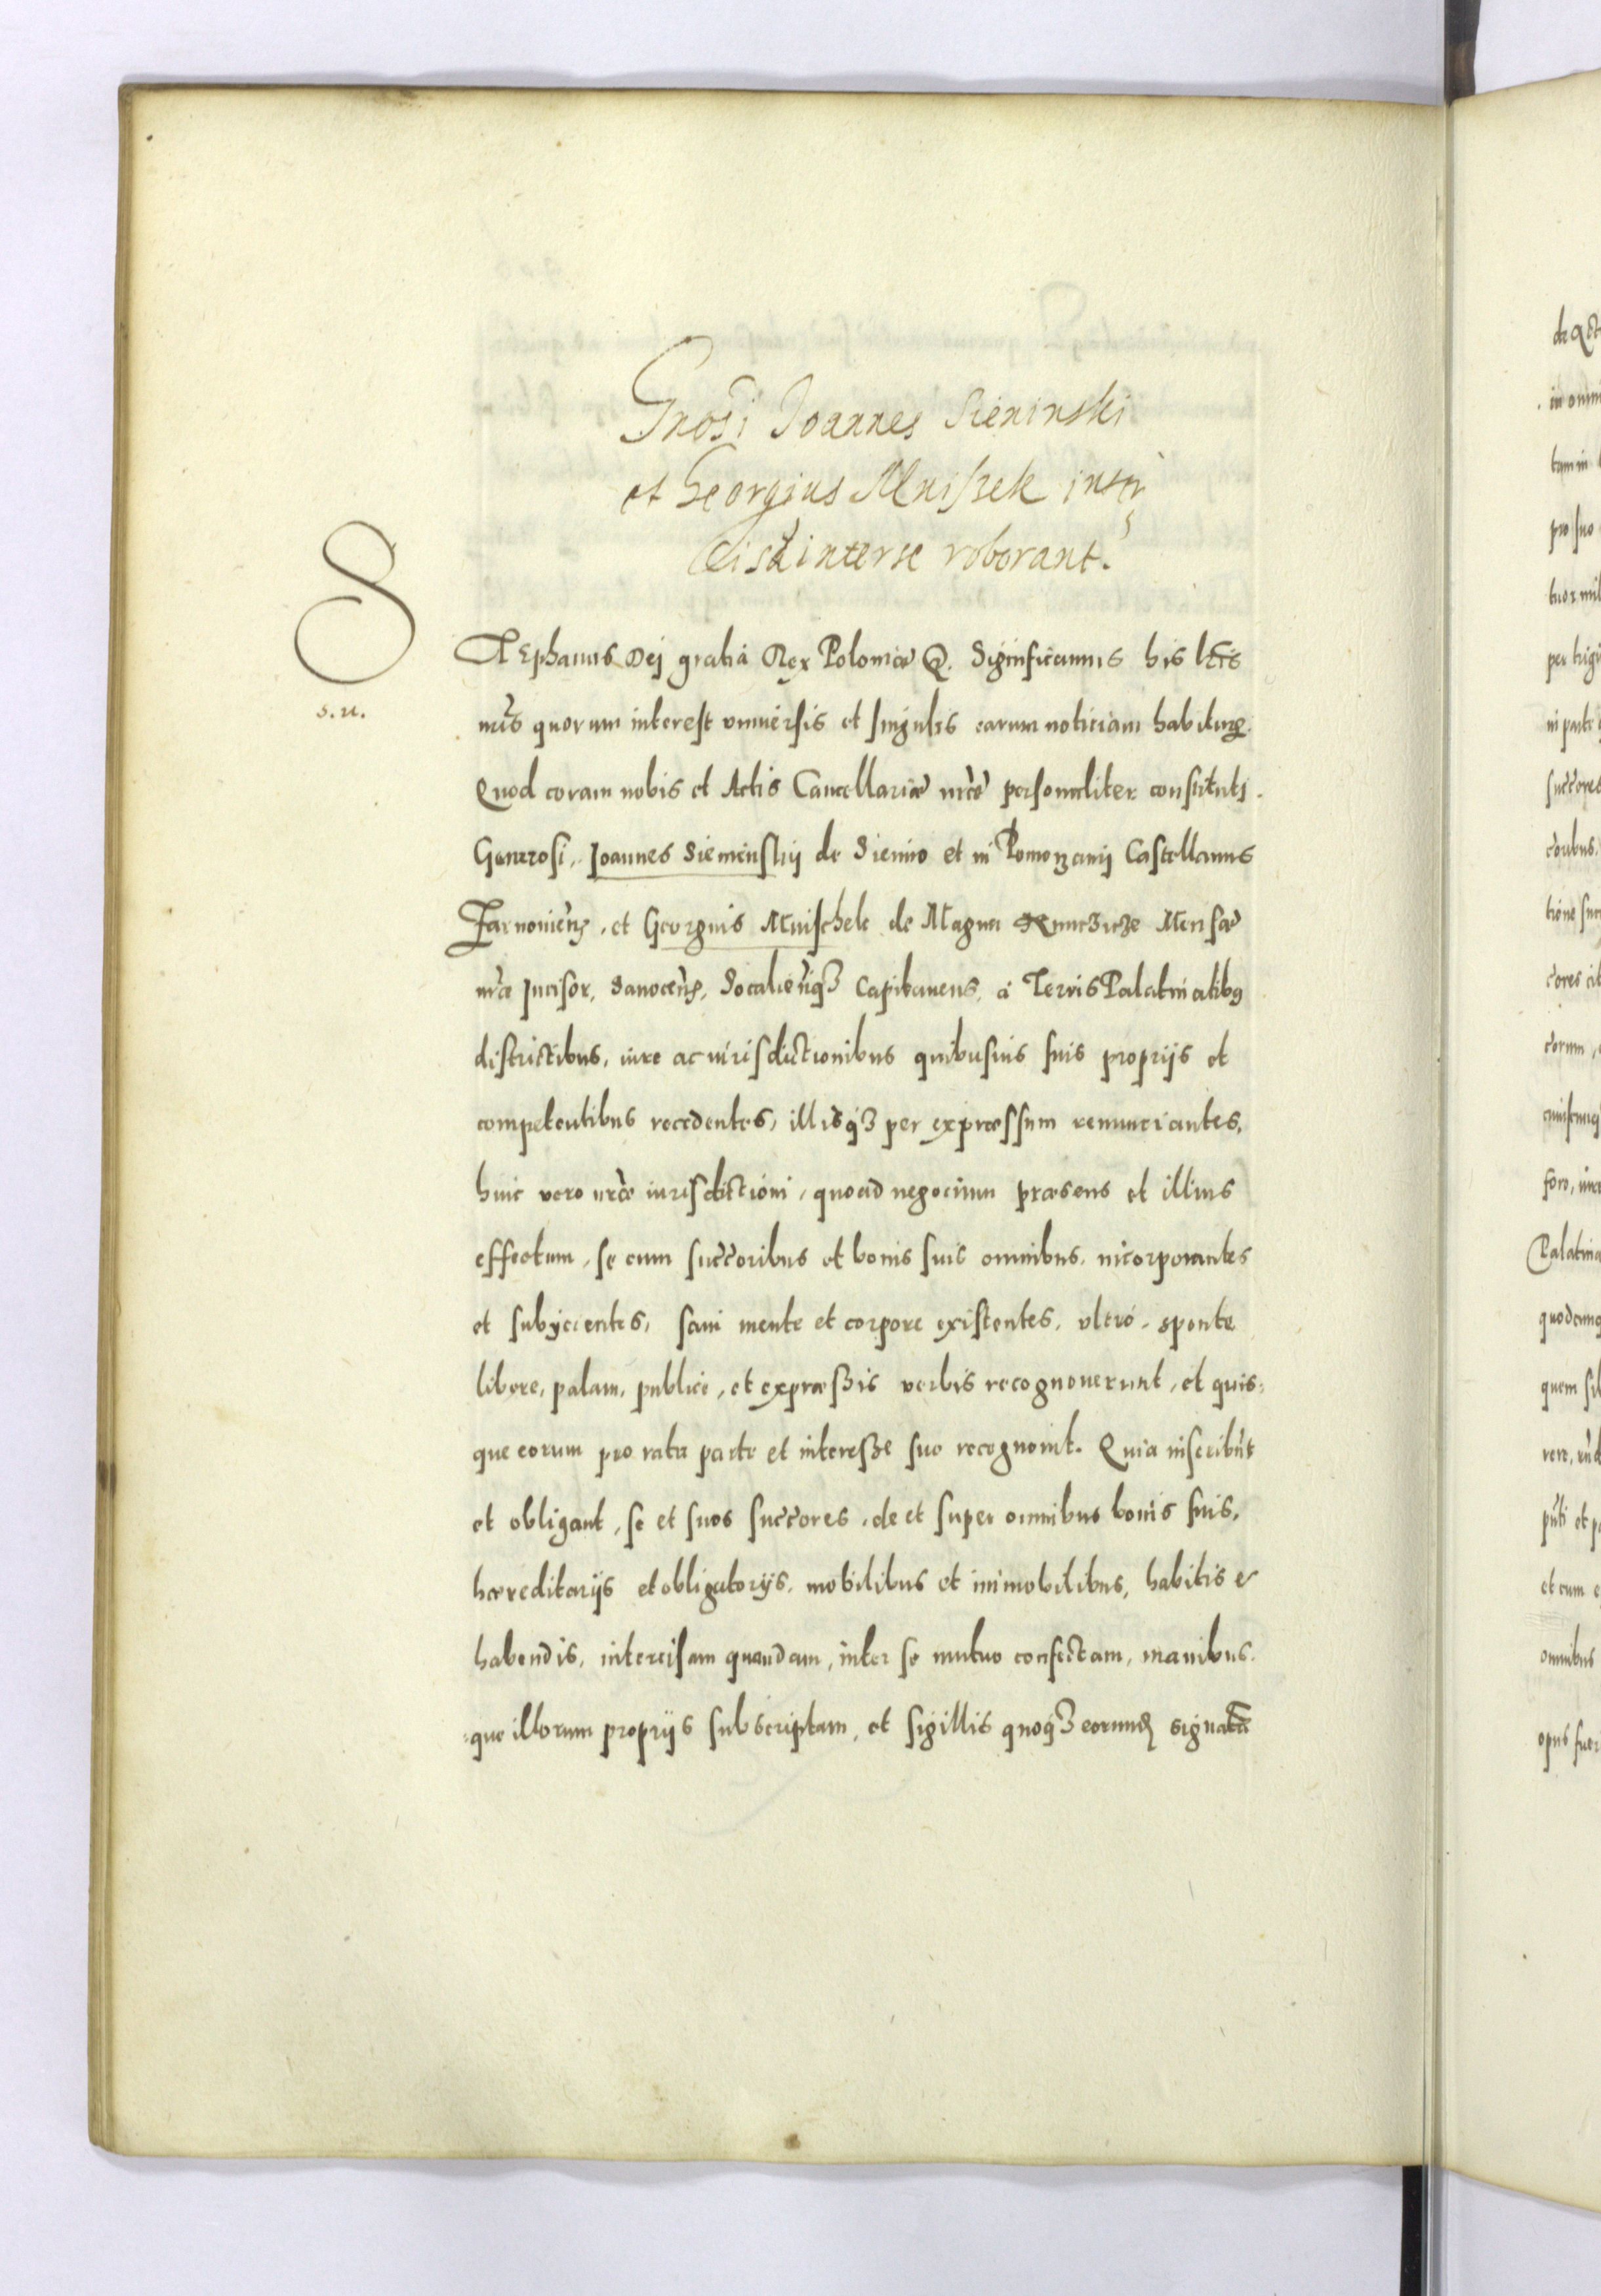 Gnosi Joannes Sieninski
et Georgius Mniszek inter
cisā inter se roborant.
S
s. u.
TEphanus Dej gratia Rex Poloniæ &. Significamus his lris
nris quorum interest vniuersis et singulis earum noticiam habiturꝫ.
Quod coram nobis et Actis Cancellariæ nræ personaliter constituti.
Generosi, Joannes Siemienskij de Sienno et in Pomorzanij Castellanus
Żarnouien, et Georgius Mnischek de Magna Kunczicze Mensæ
nræ Incisor, Sanoceñ, Socalieñqꝫ Capitaneus, à Terris Palatinatibꝰ
districtibus, iure ac iurisdictionibus quibusuis suis proprijs et
competentibus recedentes, illisqꝫ per expræssum renunciantes,
huic vero nræ iurisdictioni, quoad negocium præsens et illius
effectum, se cum succoribus et bonis suis omnibus, incorporantes
et subijcientes, sani mente et corpore existentes, vltro, sponte
libere, palam, publice, et expræssis verbis recognouerunt, et quis-
que eorum pro rata parte et interesse suo recognouit. Quia inscribũt
et obligant, se et suos succores, de et super omnibus bonis suis,
hæreditarijs et obligatorijs, mobilibus et immobilibus, habitis &
habendis, intercisam quandam, inter se mutuo confectam, manibus-
-que illorum proprijs subscriptam, et sigillis quoqꝫ eorund signatā
de Act
in omni
tam in
pro suo
tuor mil
per trigi
in parte
succores
coribus.
tione suc
cores cit
corum,
cuiscunq
foro,
Palatina
quodcunq
quem si
vere,
et cum e
omnibus
opus fuer